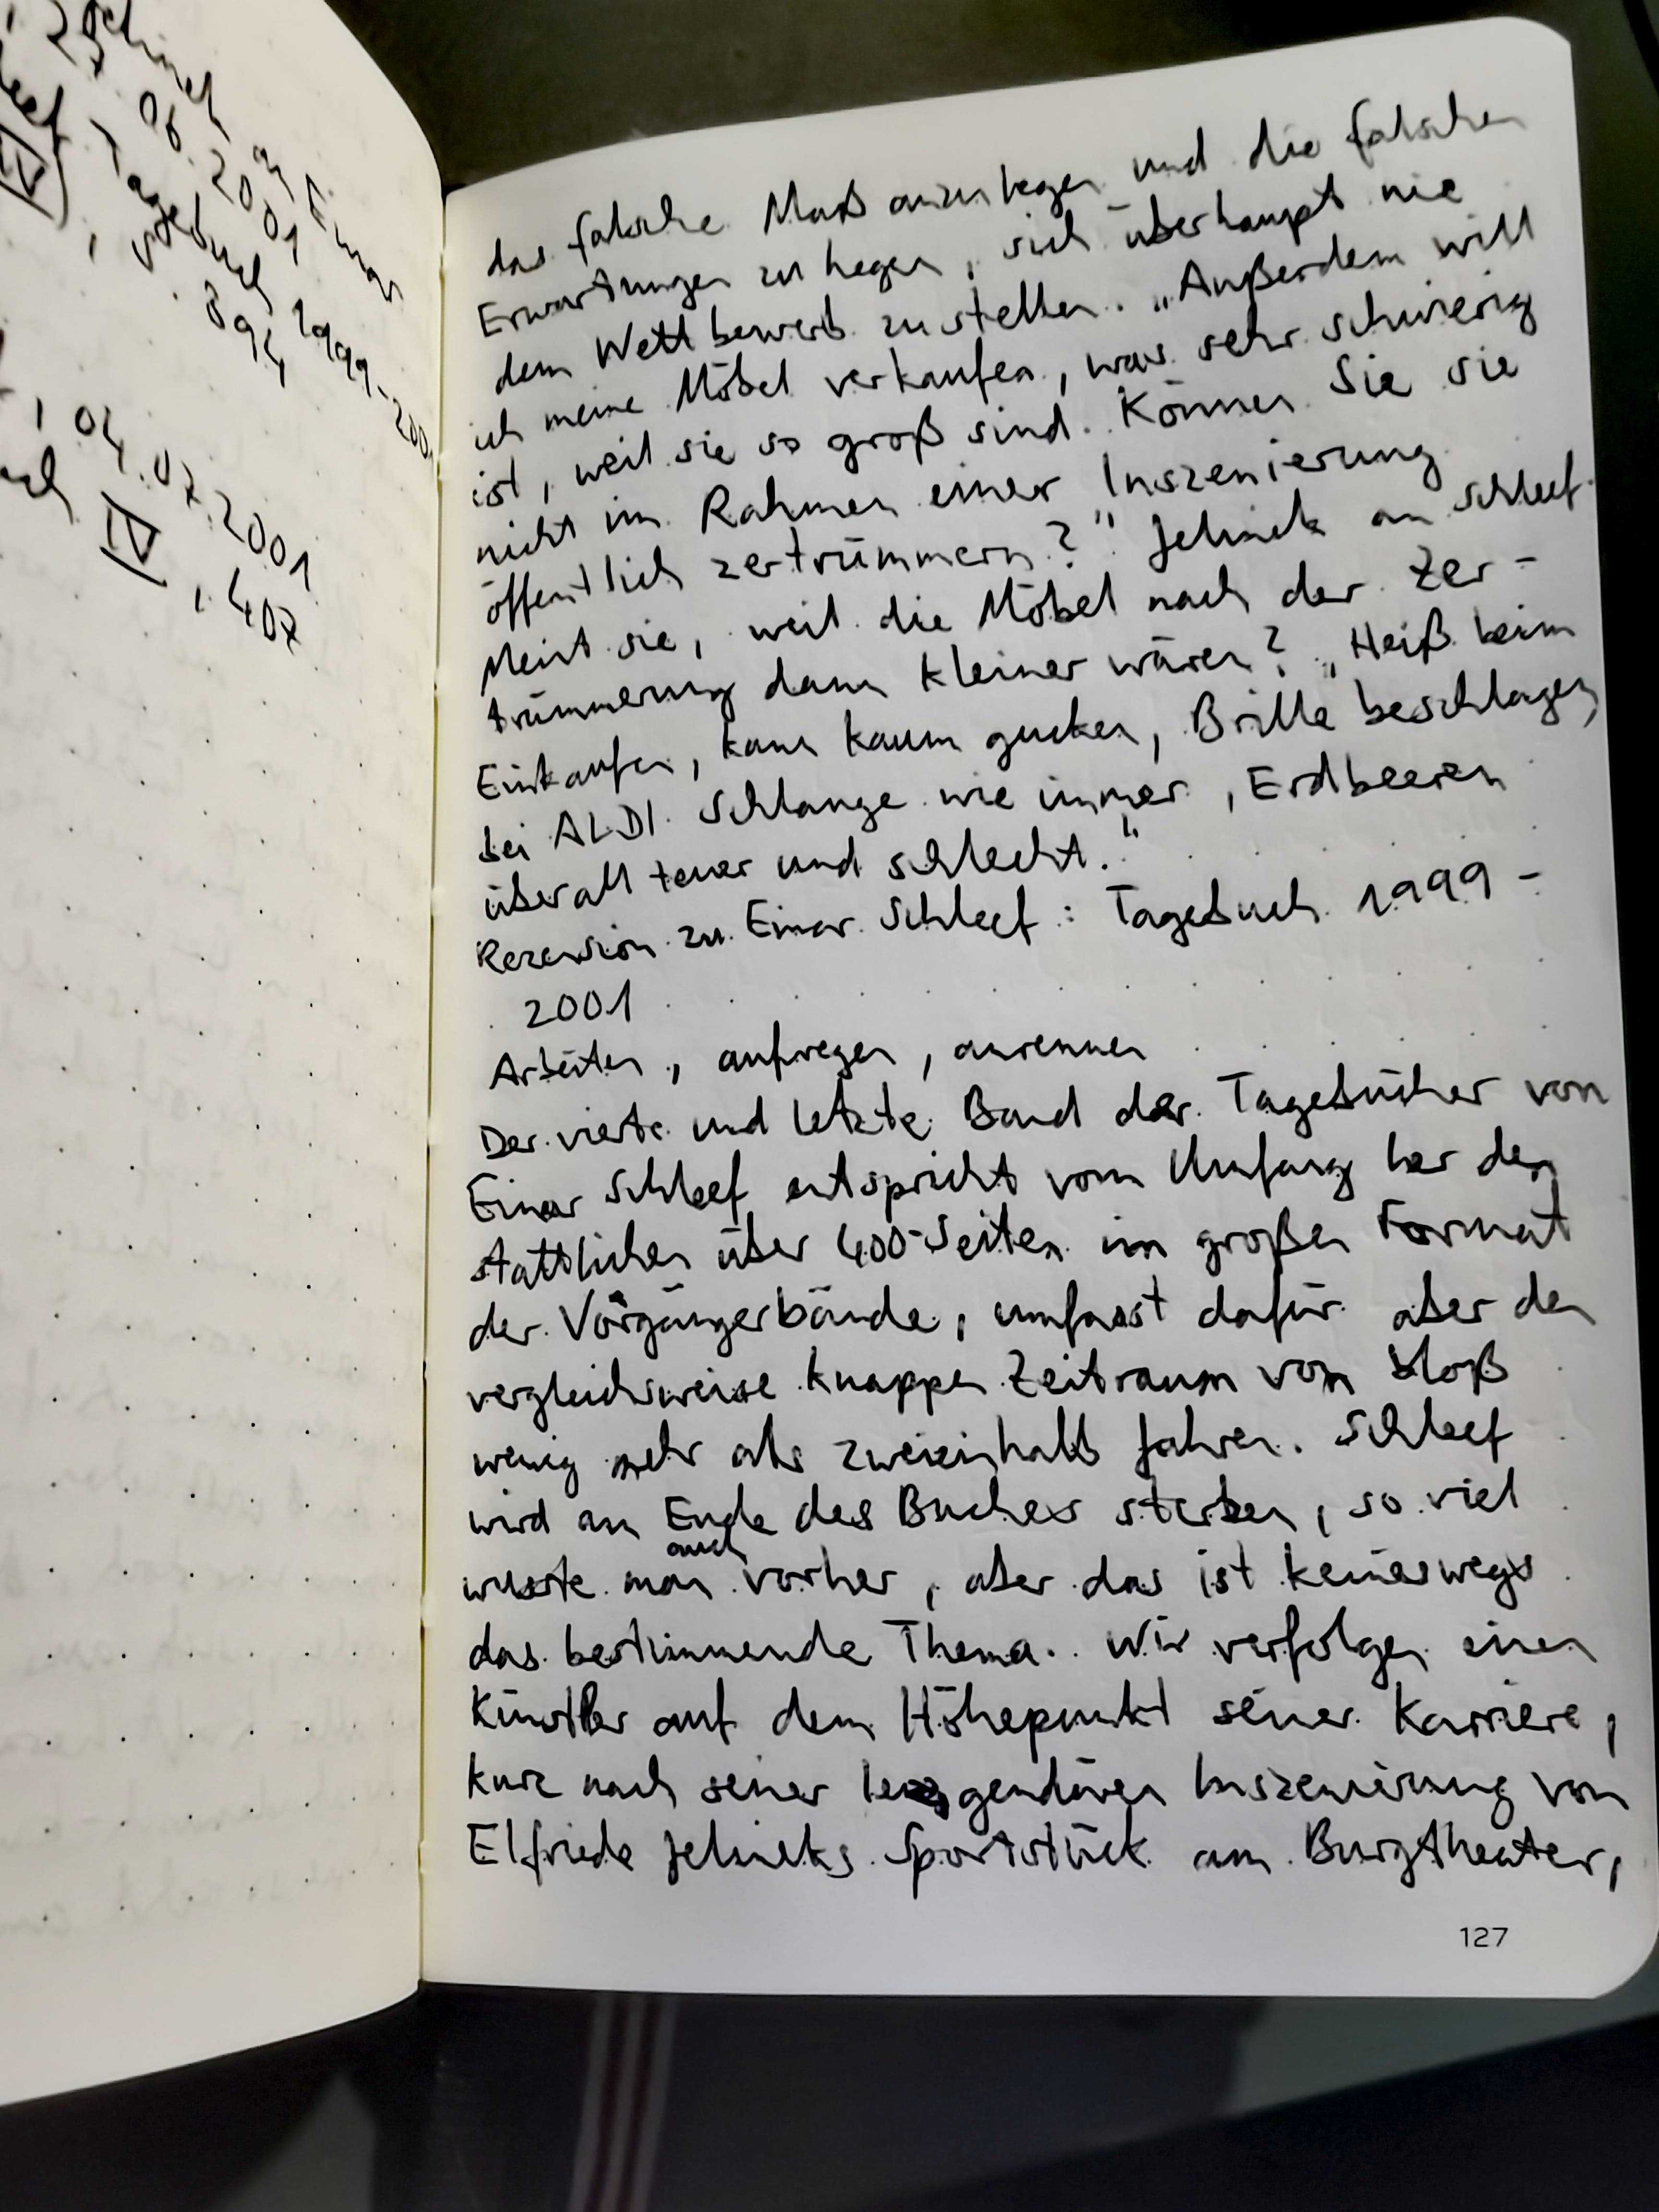 Jelinek an Einar
27.06.2001
Tagebuch 1999-2001
IV, S. 394
, 04.07.2001
IV, 407
das falsche Maß anzulegen und die falschen
Erwartungen zu hegen, sich überhaupt nie
dem Wettbewerb zu stellen. „Außerdem will
ich meine Möbel verkaufen, was sehr schwierig
ist, weil sie so groß sind. Können Sie sie
nicht im Rahmen einer Inszenierung
öffentlich zertrümmern?" Jelinek an Schleef.
Meint sie, weil die Möbel nach der Zer-
trümmerung dann kleiner wären? „Heiß beim
Einkaufen, kann kaum gucken, Brille beschlagen,
bei ALDI Schlange wie immer, Erdbeeren
überall teuer und schlecht."
Rezension zu Einar Schleef: Tagebuch 1999-
2001
Arbeiten, aufregen, anrennen
Der vierte und letzte Band der Tagebücher von
Einar Schleef entspricht vom Umfang her den
stattlichen über 400-Seiten im großen Format
der Vorgängerbände, umfasst dafür aber den
vergleichsweise knappen Zeitraum von bloß
wenig mehr als zweieinhalb Jahren. Schleef
wird am Ende des Buches sterben, so viel
wusste man auch vorher, aber das ist keineswegs
das bestimmende Thema. Wir verfolgen einen
Künstler auf dem Höhepunkt seiner Karriere,
kurz nach seiner legendären Inszenierung von
Elfriede Jelineks Sportstück am Burgtheater,
127